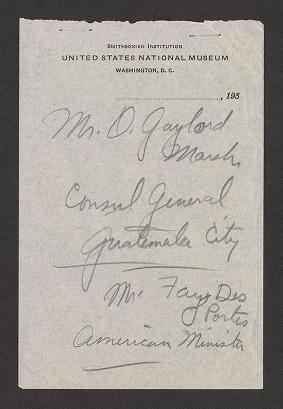 SMITHSONIAN INSTITUTION
UNITED STATES NATIONAL MUSEUM
WASHINGTON, D. C.
, 193
Mr. O. Gaylord
Marsh
Consul General
Guatemala City
Mr. Fay Des
Portes
American Minister